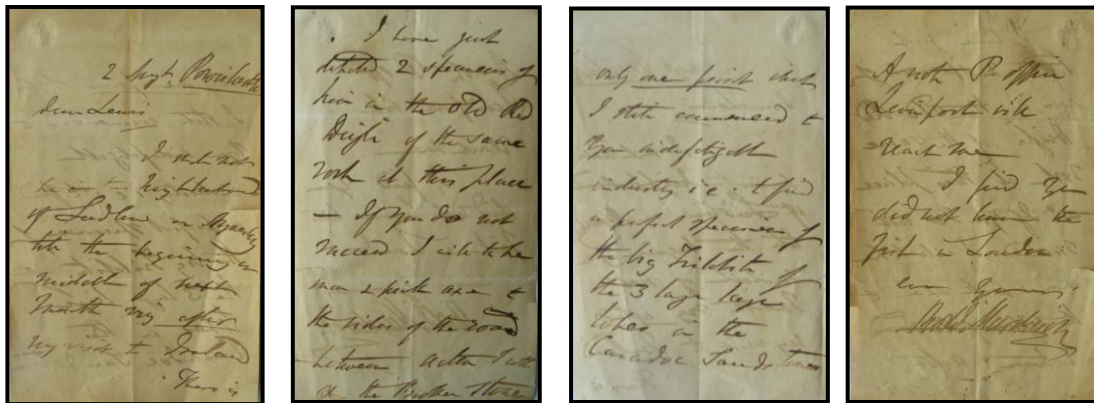 2 Augt.
Dear Lewis
I shall not
be in the neighbourhood
of Ludlow or
till the beginning or
middle of next
month viz after
my visit to Ireland
There is
. I have just
detected 2 specimens of
him in the Old Red
of the same
rock at this place
– If you do not
succeed I will take
man & pick axe to
the sides of the road
between Acton
& the Stone
only one point which
I still commend to
your indefatigable
industry i.e. to find
a perfect specimen of
the big Trilobite of
the 3 large
lobes in the
Caradoc Sandstones
A note P. office
will
reach me
I find you
did not leave the
in London
ever yours